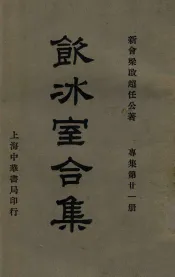 新會梁啟超任公著
專集第廿一册
飲冰室合集
上海中華書局印行